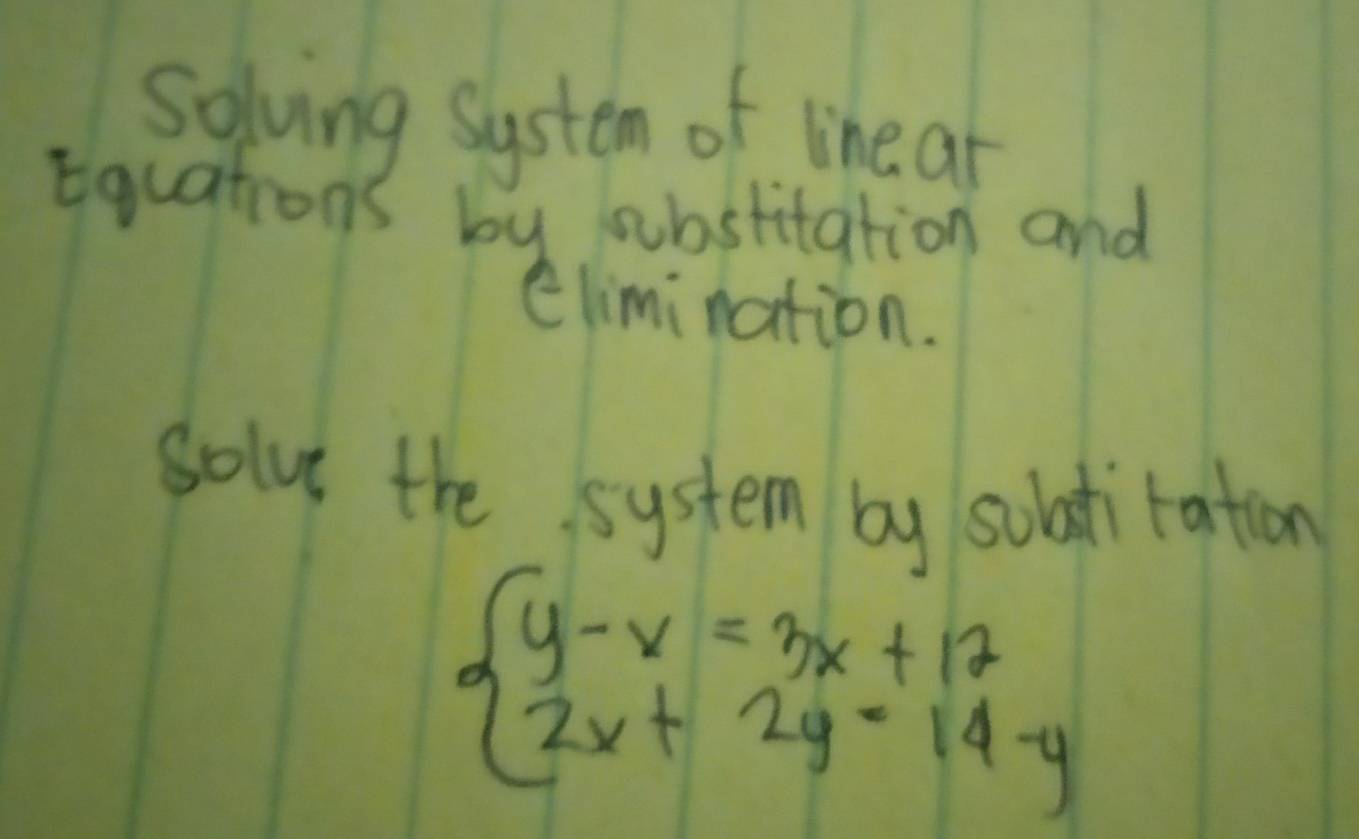 Solving system of linear
Equations by substitation and
elimination.
Solve the system by substitation
y - x = 3x + 12
2x + 2y = 14 - y